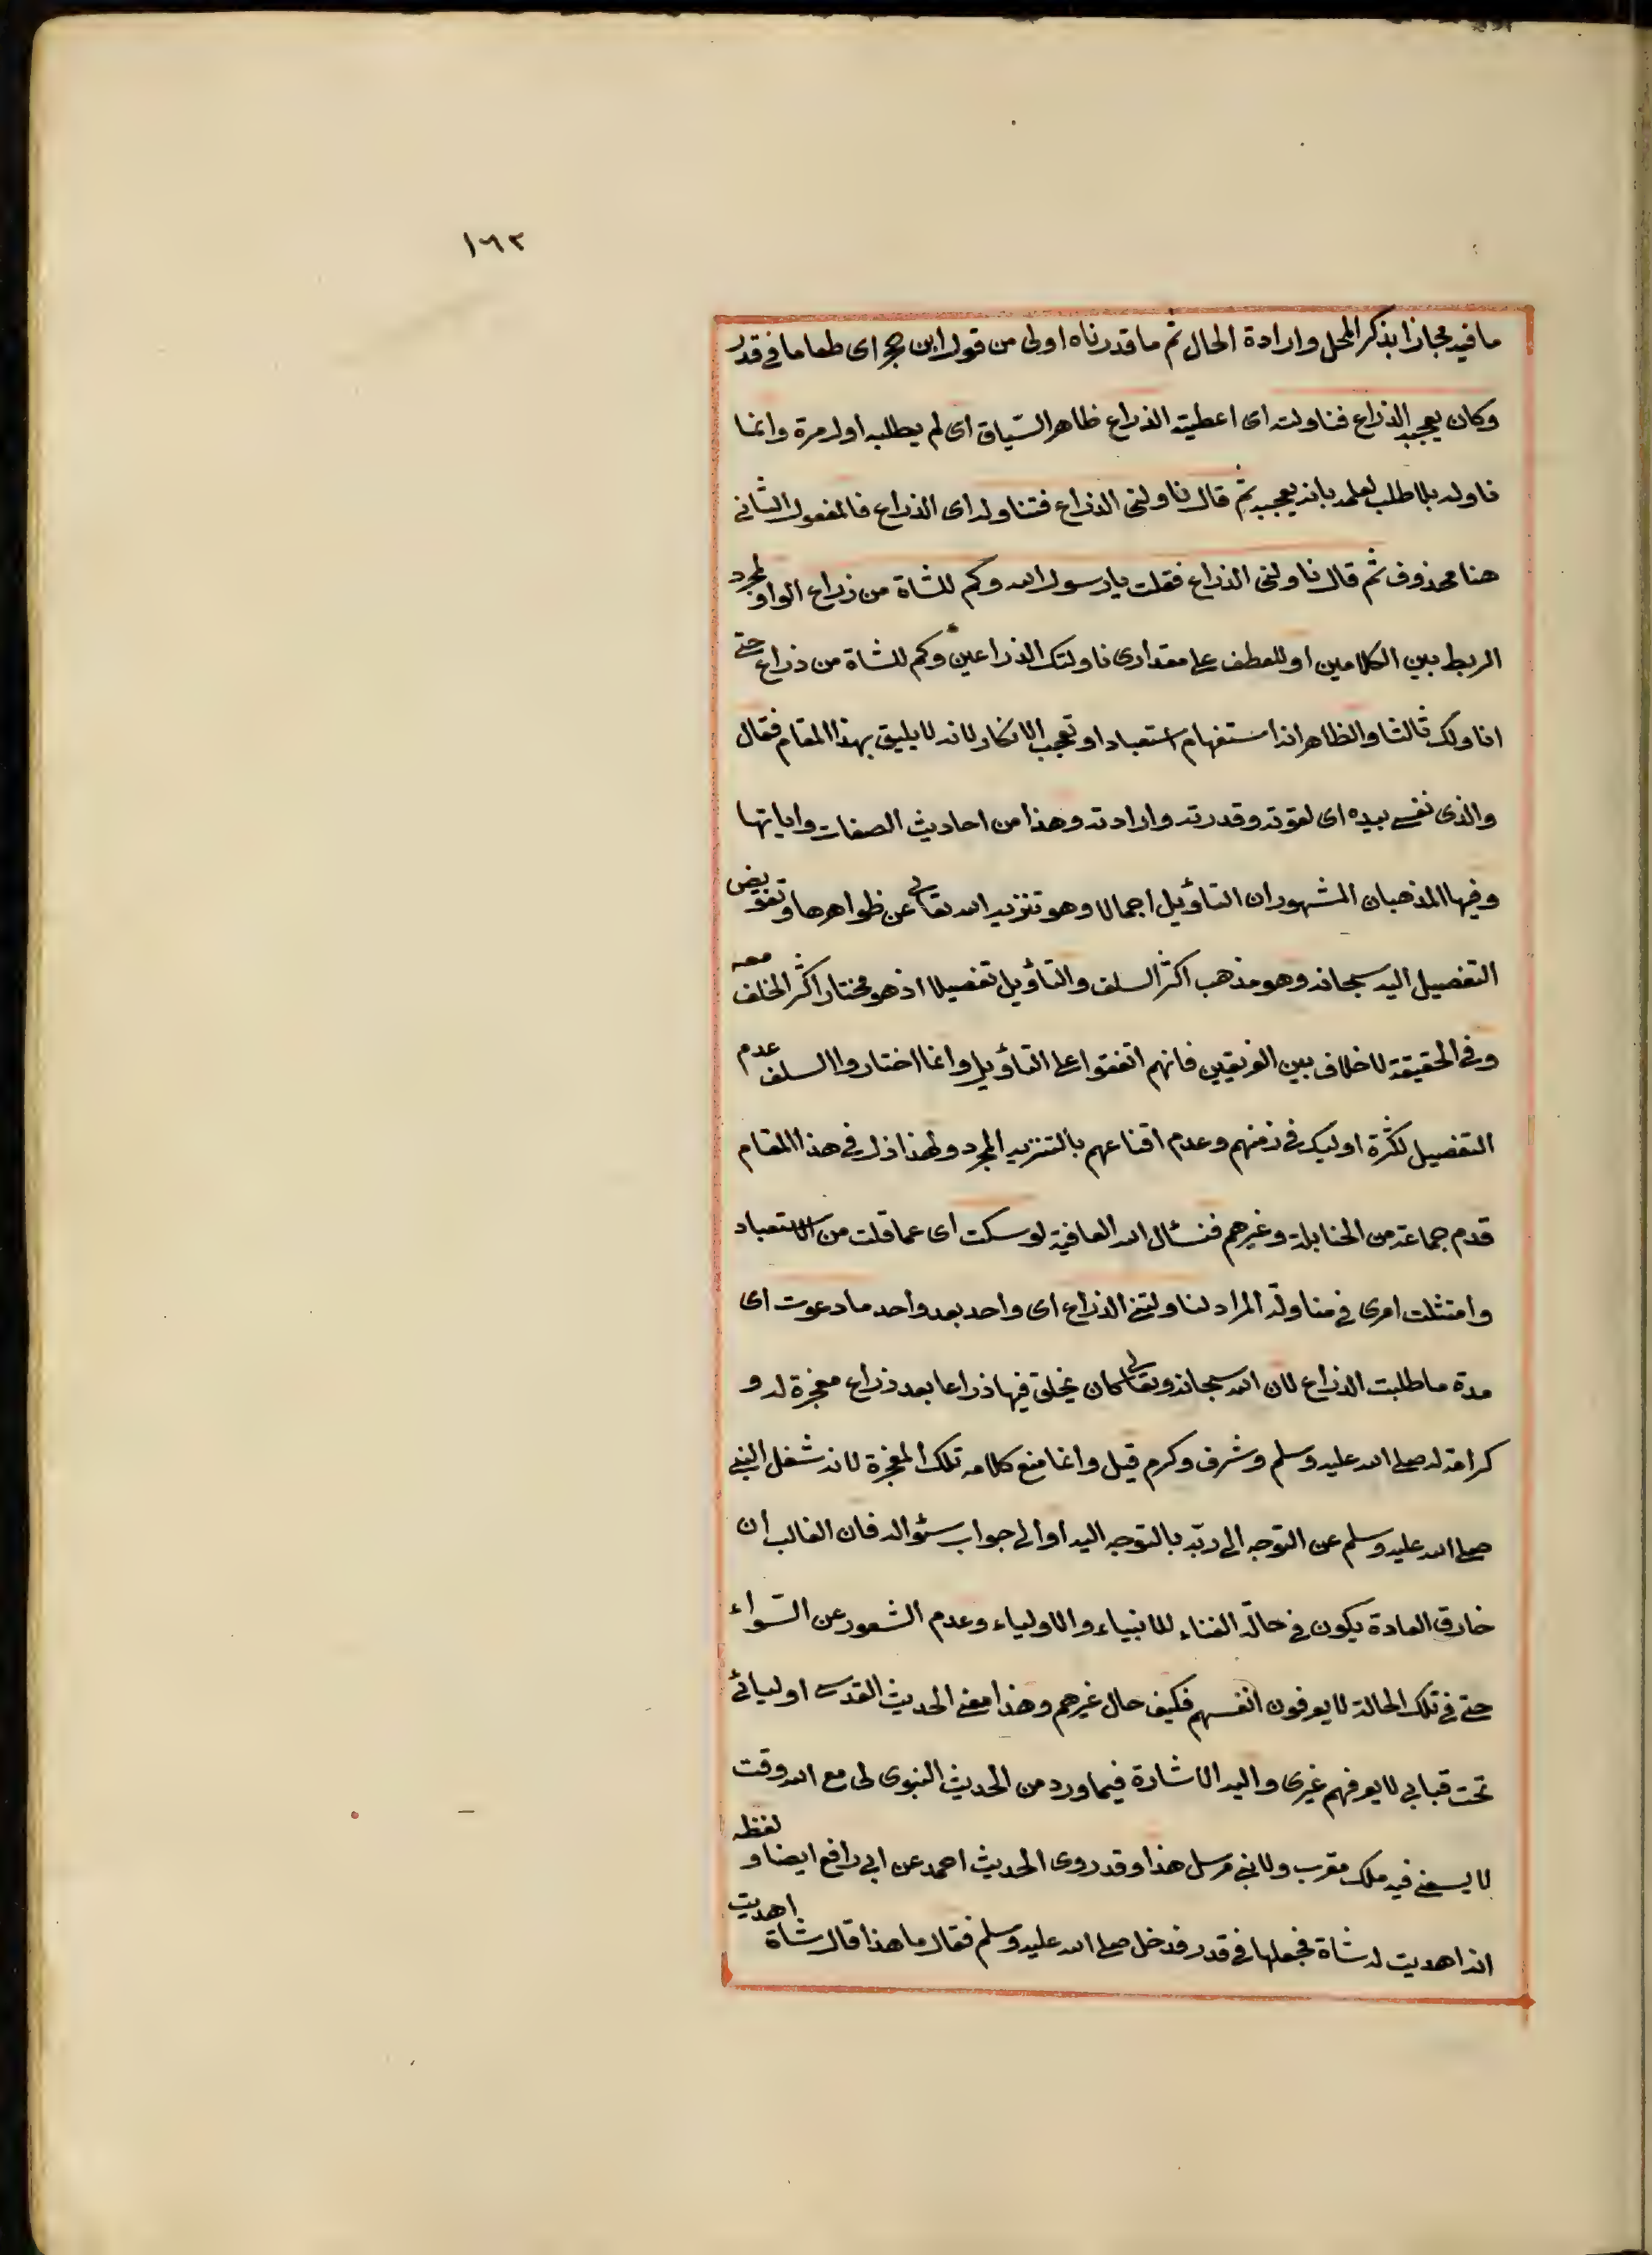 ١٦٢
ما فيه مجازا بذكر المحل وارادة الحال ثم ما قدرناه اولى من قول ابن حجر اى طعاما فى قدر
وكان يعجبه الذراع فناولته اى اعطيته الذراع ظاهر السّياق اى لم يطلبه اول مرة وانما
ناوله بلا طلب لعلمه بانه يعجبه ثم قال ناولنى الذراع فتناوله اى الذراع فالمفعول الثانى
هنا محذوف ثم قال ناولنى الذراع فقلت يا رسول الله وكم للشاة من ذراع الواو لمجرد
الربط بين الكلامين او للعطف على مقدار اى ناولتك الذراعين وكم للشاة من ذراع حتى
اناولك ثالثا والظاهر انه استفهام استبعاد او تعجب لا انكار لانه لا يليق بهذا المقام فقال
والذى نفسى بيده اى لقوته وقدرته وارادته وهذا من احاديث الصفات واياتها
وفيها المذهبان المشهوران التأويل اجمالا وهو تنزيه الله تعالى عن ظواهرها وتفويض
التفصيل اليه سبحانه وهو مذهب اكثر السلف والتأويل تفصيلا اذ هو مختار اكثر الخلف معه
وفى الحقيقة لا خلاف بين الفريقين فانهم اتفقوا على التأويل وانما اختاروا السلف عدم
التفصيل لكثرة اوليك فى زمنهم وعدم اقناعهم بالتنزيه المجرد ولهذا ذل فى هذا المقام
قدم جماعة من الحنابلة وغيرهم فنسئال الله العافية لو سكت اى عما قلت من الاستعباد
وامتثلت امرى فى مناولة المراد لناولتنى الذراع اى واحد بعد واحد ما دعوت اى
مدة ما طلبت الذراع لان الله سبحانه وتعالى كان يخلق فيها ذراعا بعد ذراع معجزة له و
كرامة له صلى الله عليه وسلم وشرف وكرم قيل وانما منع كلامه تلك المعجزة لانه شغل النبى
صلى الله عليه وسلم عن التوجه الى ربّه بالتوجه اليه او الى جواب سئواله فان الغالب ان
خارق العادة يكون فى حالة الفناء للانبياء والاولياء وعدم الشعور عن السّواء
حتى فى تلك الحالة لا يعرفون انفسهم فكيف حال غيرهم وهذا معنى الحديث القدسى اوليائى
تحت قبابى لا يعرفهم غيرى واليه الاشارة فيما ورد من الحديث النبوى لى مع الله وقت
لا يسعنى فيه ملك مقرب ولا نبى مرسل هذا وقد روى الحديث احمد عن ابى رافع ايضا ولفظه
انه اهديت له شاة فجعلها فى قدر فدخل صلى الله عليه وسلم فقال ما هذا قال شاة اهديت